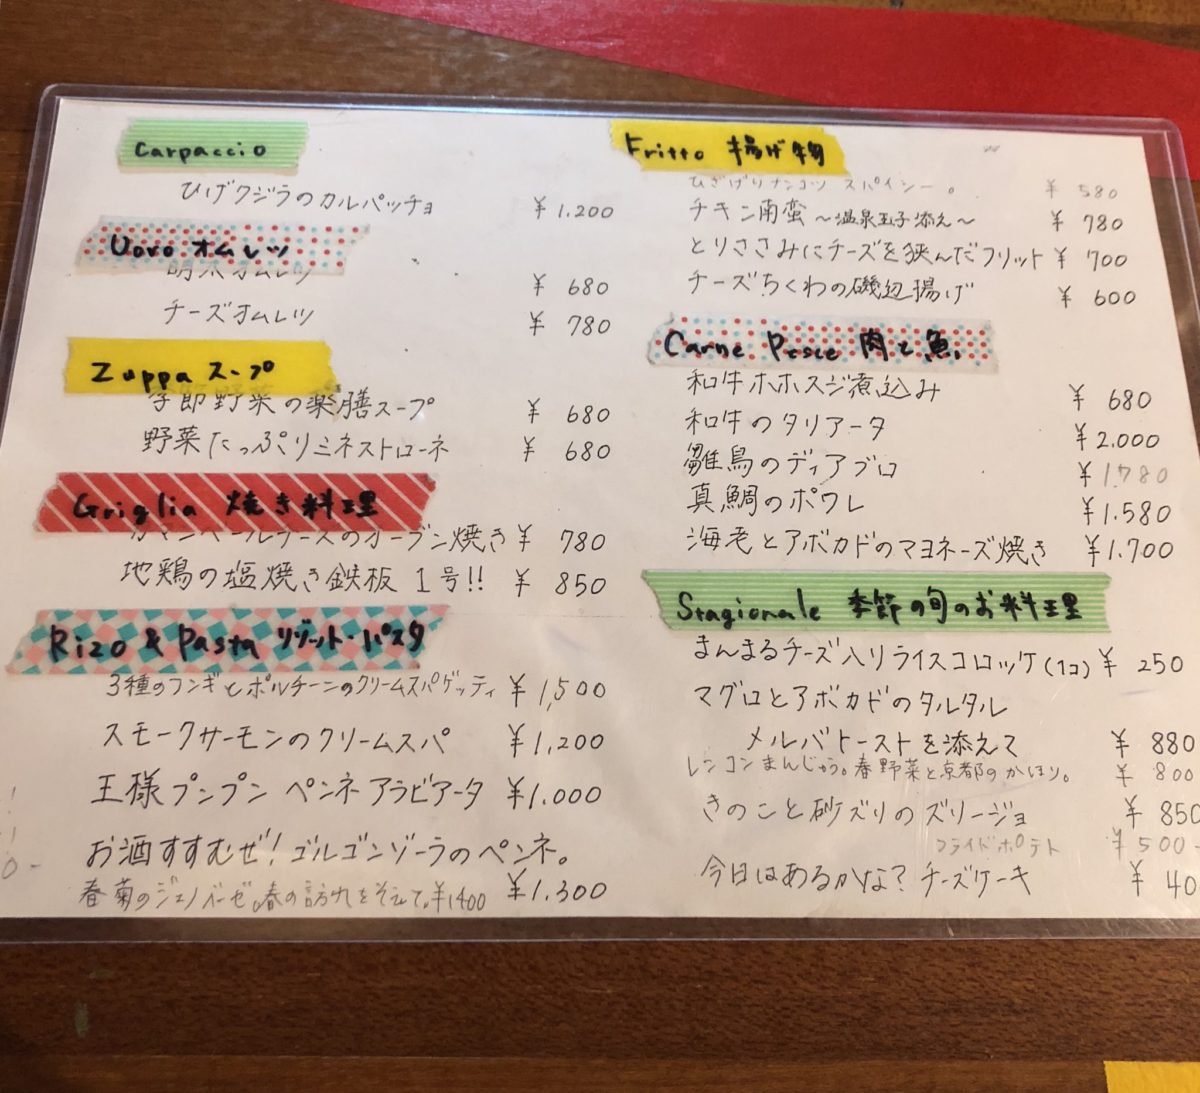 Carpaccio
ひげクジラのカルパッチョ ¥1.200
Uovo オムレツ
明太オムレツ ¥680
チーズオムレツ ¥780
Zuppa スープ
季節野菜の薬膳スープ ¥680
野菜たっぷりミネストローネ ¥680
Griglia 焼き料理
カマンベールチーズのオーブン焼き ¥780
地鶏の塩焼き鉄板1号!! ¥850
Rizo & Pasta リゾット・パスタ
3種のフンギとポルチーンのクリームスパゲッティ ¥1,500
スモークサーモンのクリームスパ ¥1,200
王様プンプン ペンネアラビアータ ¥1.000
お酒すすむぜ!ゴルゴンゾーラのペンネ。
¥1.300
春菊のジェノベーゼ。春の訪れをそえて。¥1400
Fritto 揚げ物
ひざげりナンコツ スパイシー。 ¥580
チキン南蛮 〜温泉玉子添え〜 ¥780
とりささみにチーズを挟んだフリット ¥700
チーズちくわの磯辺揚げ ¥600
Carne Pesce 肉と魚
和牛ホホスジ煮込み ¥680
和牛のタリアータ ¥2.000
雛鳥のディアブロ ¥1.780
真鯛のポワレ ¥1.580
海老とアボカドのマヨネーズ焼き ¥1.700
Stagionale 季節の旬のお料理
まんまるチーズ入りライスコロッケ(1コ) ¥250
マグロとアボカドのタルタル
メルバトーストを添えて ¥880
レンコンまんじゅう。春野菜と京都のかほり。 ¥800
きのこと砂ズリのズリージョ ¥850
フライドポテト ¥500-
今日はあるかな?チーズケーキ ¥40